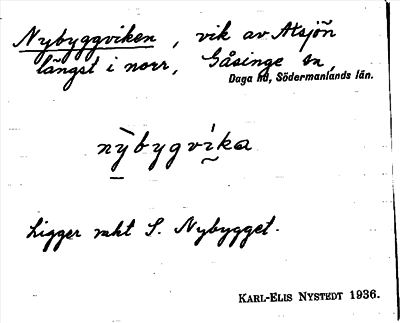 Nybyggviken, vik av Atsjön
längst i norr, Gåsinge sn,
Daga hd, Södermanlands län.
nỳbygvíka
Ligger mkt S. Nybygget.
KARL-ELIS NYSTEDT 1936.